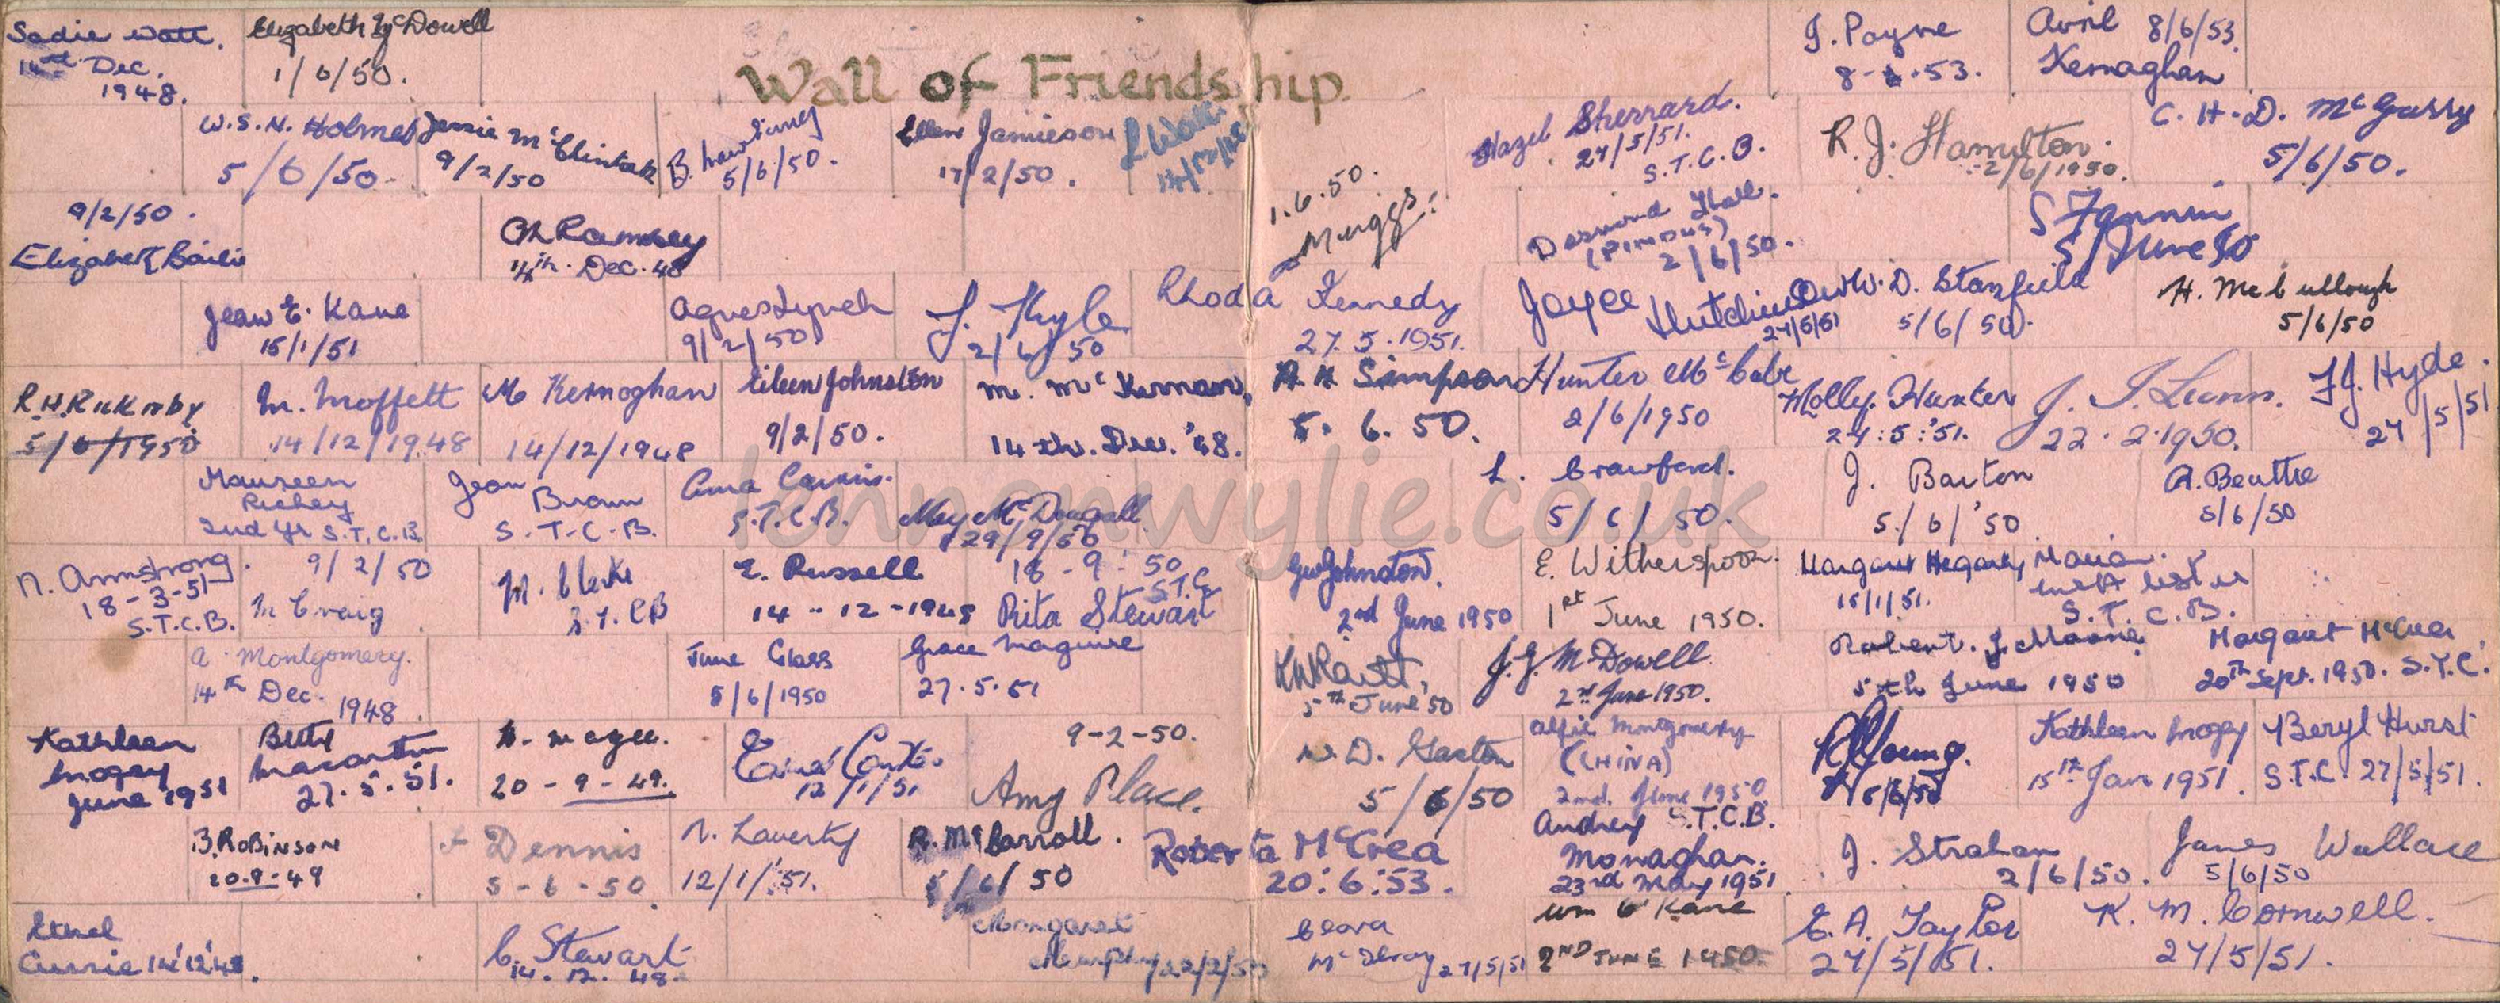 Wall of Friendship
Sadie Watt.
14th Dec.
1948.
Elizabeth McDowell
1/6/50.
J. Payne
8-6-53.
Avril 8/6/53.
Kernaghan
W.S.H. Holmes
5/6/50
Jessie McClintock
9/2/50
B.
5/6/50.
Ellen Jamieson
17/2/50.
L Watt
Hazel Sherrard.
27/5/51.
S.T.C.B.
R. J. Hamilton.
2/6/1950.
C. H. D. McGarry
5/6/50.
9/2/50.
Elizabeth
Ramsey
14th. Dec. 48
1.6.50.
Muggs.
Desmond Hall.
(PINDUS)
2/6/50.
S Fannin
5/June 50
Jean E. Kane
15/1/51
Agnes Lynch
9/2/50
J. Kyle
2/6/50
Rhoda Kennedy
27.5.1951.
Joyce Hutchinson
27/5/51
W. D. Stanfield
5/6/50.
H. McCullough
5/6/50
5/6/1950
M. Moffett
14/12/1948
M Kernoghan
14/12/1948
Eileen Johnston
9/2/50.
M. McKernan,
14th. Dec. '48.
Simpson
5. 6. 50.
Hunter McCabe
2/6/1950
Molly Hunter
27:5:'51.
J. I. Lunn.
22.2.1950.
F.J. Hyde.
27/5/51
Maureen
Richey
2nd Yr S.T.C.B.
Jean
Brown
S.T.C.B.
Anna
S.T.C.B.
May McDougall
29/9/50
L. Crawford.
5/6/50.
J. Barton
5/6/'50
A. Beattie
5/6/50
N. Armstrong.
18-3-51
S.T.C.B.
9/2/50
M Craig
M. Clerke
S.T.C.B
E. Russell
14-12-1948
18-9-50
S.T.C.
Rita Stewart
Geo Johnston.
2nd June 1950
E. Witherspoon.
1st June 1950.
Margaret Hegarty
15/1/51.
Maria
S.T.C.B.
A. Montgomery.
14th Dec. 1948
June Glass
5/6/1950
Grace Maguire
27.5.51
5th June '50
J.J. McDowell.
2nd June 1950.
Robert. J Moore
5th June 1950
Margaret McCrea
20th Sept. 1950. S.T.C.
Kathleen
Mogey
June 1951
Betty
Macartin
27.5.51.
McGee.
20-9-49.
12/1/51
9-2-50.
Amy Place.
W. D. Gaston
5/6/50
Alfie Montgomery
(CHINA)
2nd. June 1950
Young.
5/6/50
Kathleen Mogey
15th Jan 1951.
Beryl Hurst
S.T.C. 27/5/51.
B. ROBINSON
20.9-49
Dennis
5-6-50
N. Laverty
12/1/'51.
R. McCarroll.
5/6/50
Roberta McCrea
20:6:53.
Audrey S.T.C.B.
Monaghan.
23rd May 1951
J. Strahan
2/6/50.
James Wallace
5/6/50
Ethel
Currie 14'12'48.
C. Stewart
14.12.48.
Margaret
Murphy 22/2/50
Clara
McIlroy 27/5/51
Wm C Kane
2ND JUNE 1950.
E. A. Taylor
27/5/51.
K. M. Cornwell.
27/5/51.
lennonwylie.co.uk